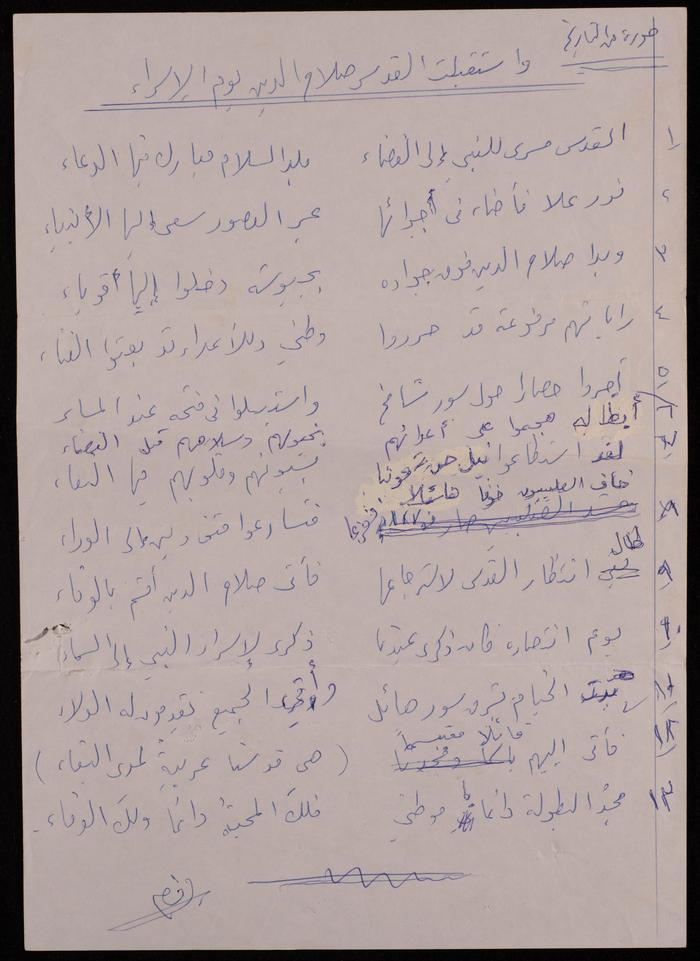 صورة من التاريخ
واستقبلت القدس صلاح الدين يوم الإسراء
١ القدس مسرى للنبي إلى الفضاء بلد السلام مبارك فيها الدعاء
٢ نور علا فأضاء في أجوائها عبر العصور سعى إليها الأنبياء
٣ وبدا صلاح الدين فوق جواده بجيوشه دخلوا إليها أقوياء
٤ راياتهم مرفوعة قد حرروا وطني وللأعداء قد بعثوا الفناء
٥ أجروا حصارا حول سور شامخ واستبسلوا في فتحه عند المساء
٦ أبطاله هجموا على أعوانهم بخيولهم وسلاحهم قبل الفضاء
٧ لقد استطاعوا نيل بسيوفهم وقلوبهم فيها النقاء
خاف الصليبيون خوفا هائلا
٨ فتسارعوا متقهقرين إلى الوراء
٩ طال انتظار القدس لاسترجاعها فأتى صلاح الدين أقسم بالوفاء
١٠ يوم انتصاره كان ذكرى عندنا ذكرى لإسراء النبي إلى السماء
١١ الخيام بقرب سور هائل وأتى الجميع تقدمون له الولاء
١٢ فأتى إليهم قائلا مقتبسا (هي قدسنا عربية لمدى البقاء)
١٣ مجد البطولة دائما يا موطني فلك المحبة دائما ولك الوفاء